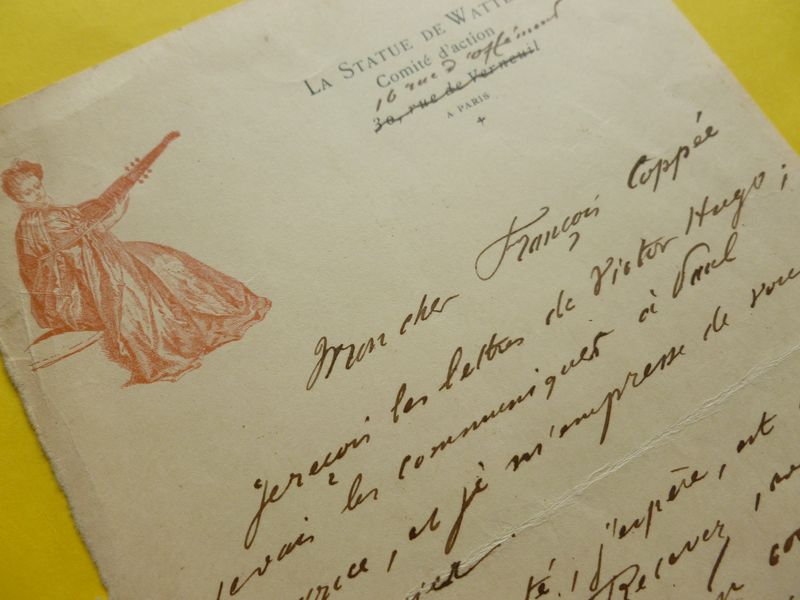 LA STATUE DE WATTE
Comité d'action
16 rue d'
30, rue de Verneuil
A PARIS
Mon cher François Coppée
Je reçois les lettres de Victor Hugo;
devais les communiquer à Paul
rice, et je m'empresse de vou
té! J'espère, est
Recevez,